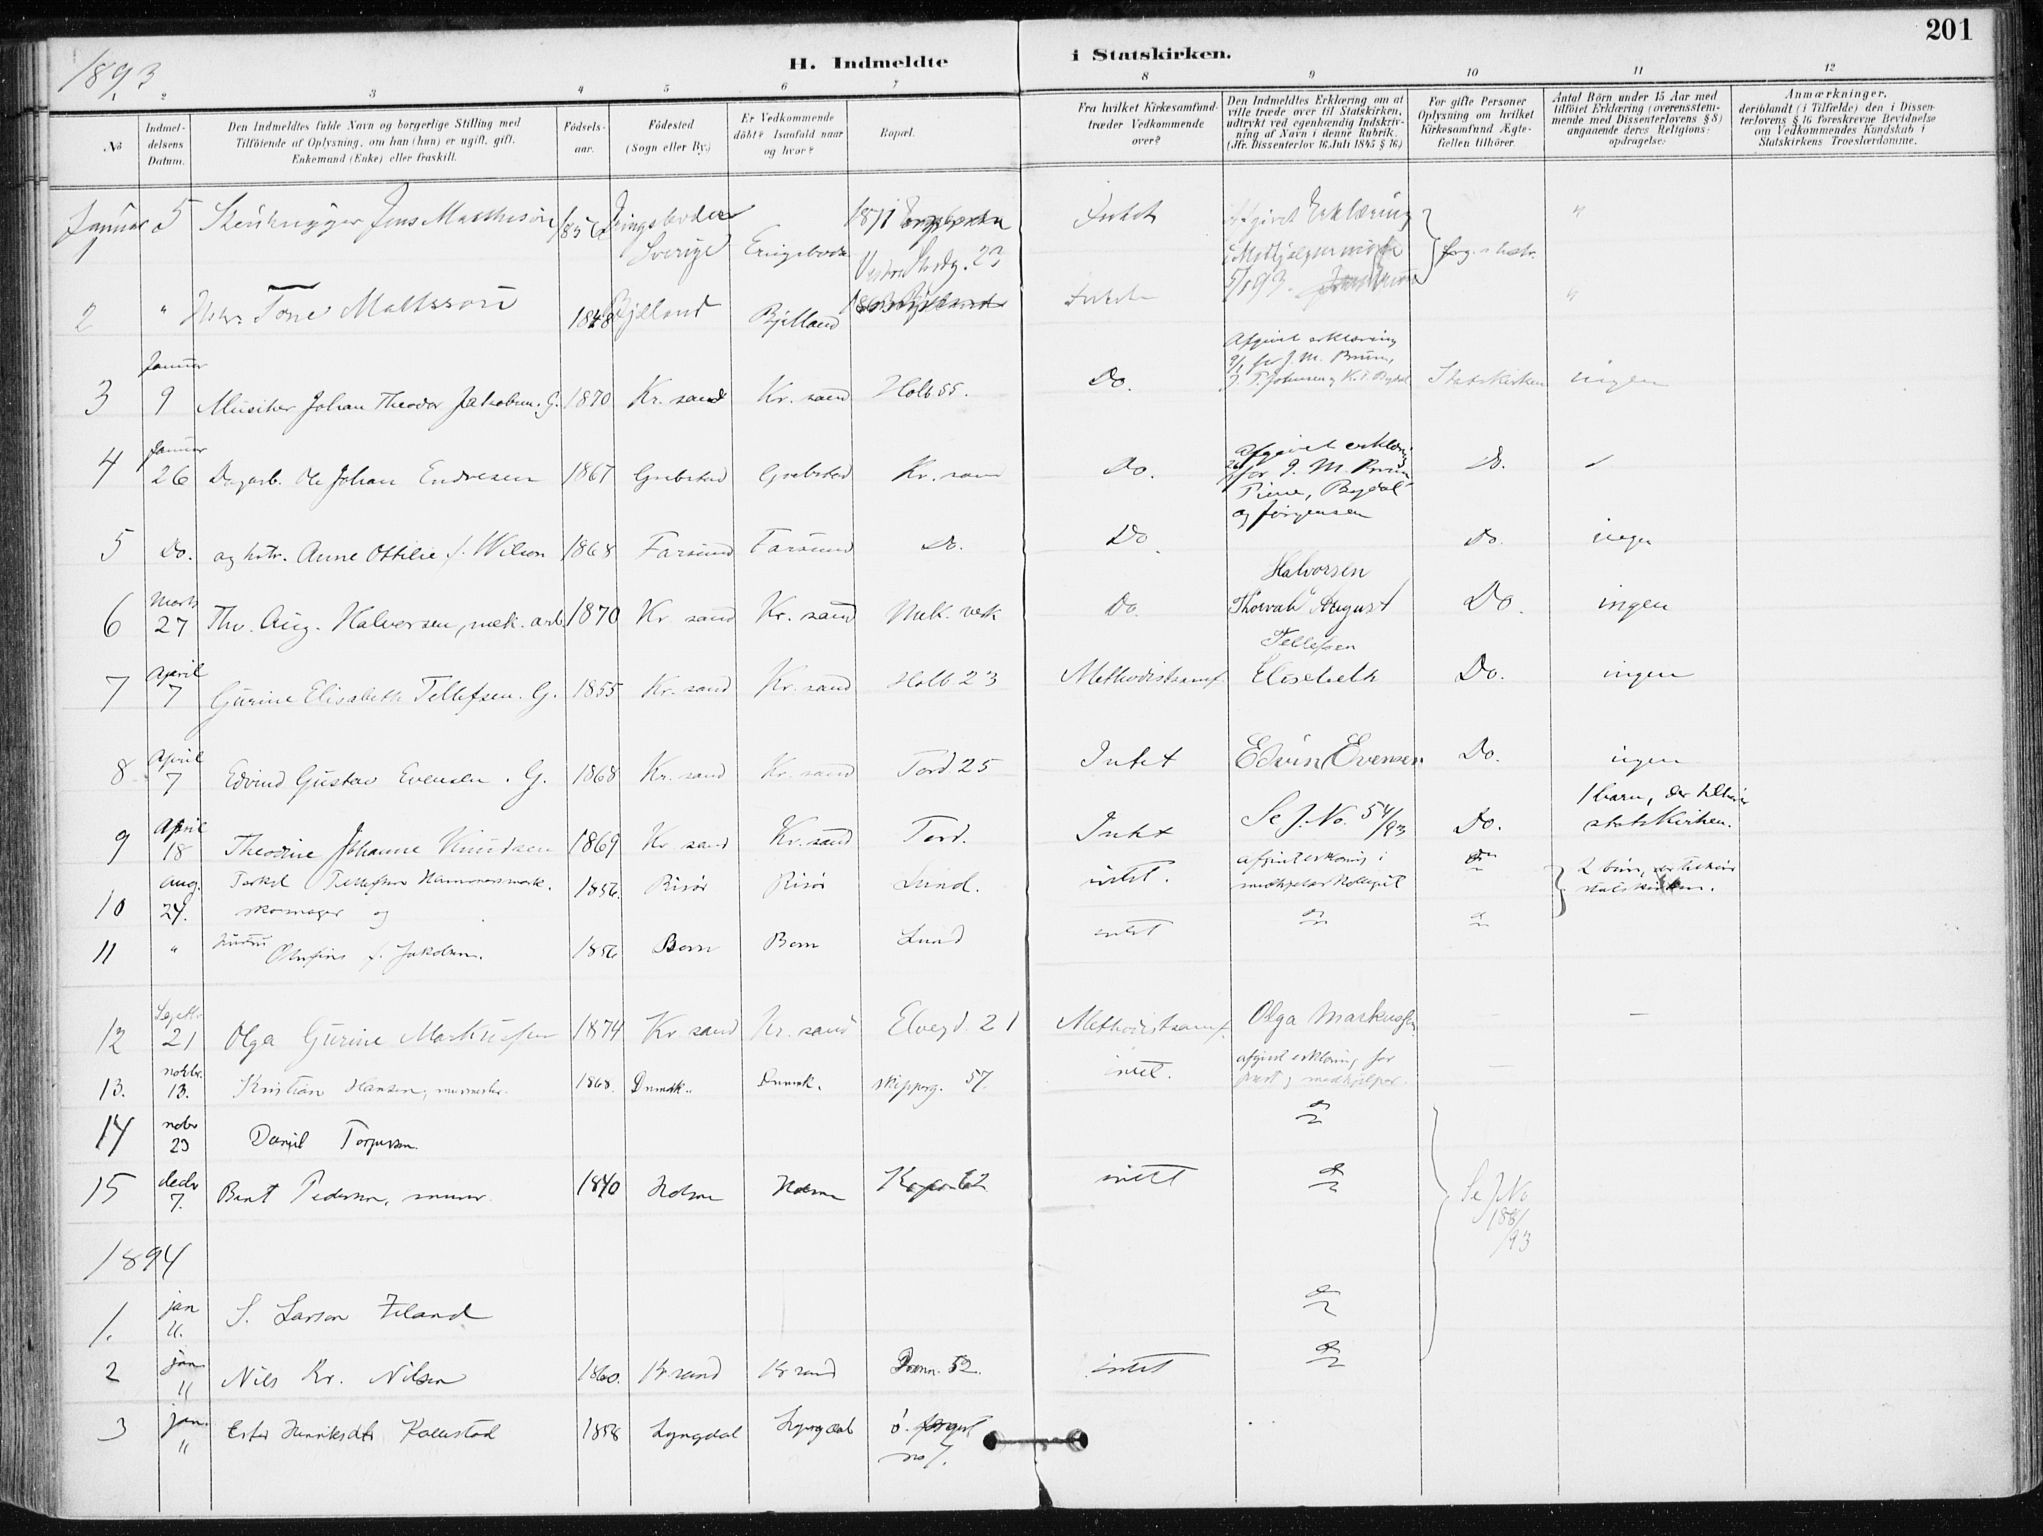 201
1893
H. Indmeldte i Statskirken.
1 2 3 4 5 6 7 8 9 10 11 12
No
Indmeldelsens Datum.
Den Indmeldtes fulde Navn og borgerlige Stilling med Tilføiende af Oplysning, om han (hun) er ugift, gift, Enkemand (Enke) eller fraskilt.
Fødselsaar.
Fødested (Sogn eller By.)
Er Vedkommende døbt? Isaafald naar og hvor?
Bopæl.
Fra hvilket Kirkesamfund træder Vedkommende over?
Den Indmeldtes Erklæring om at ville træde over til Statskirken, udtrykt ved egenhændig Indskrivning af Navn i denne Rubrik. (Jfr. Dissenterlov 16 Juli 1845 § 16)
For gifte Personer Oplysning om hvilket Kirkesamfund Ægtefællen tilhører.
Antal Børn under 15 Aar med tilføiet Erklæring (overensstemmende med Dissenterlovens § 8) angaaende deres Religionsopdragelse:
Anmærkninger, deriblandt (i Tilfælde) den i Dissenterlovens § 16 foreskrevne Bevidnelse om Vedkommendes Kundskab i Statskirkens Troeslærdomme.
Januar 5 Stenhugger Jens Matthison 1856 Sverige 1871 Intet Afgivet Erklæring "
1 Eringsboda 5/1 93.
2 " Tone Mattsson 1848 Bjelland Bjelland Intet "
Januar Afgivet erklæring
3 9 Musiker Johan Theodor Jakobsen. G. 1870 Kr. sand Kr. sand Holb 55. Do. 9/1 for J. M. Bruun, Statskirken ingen
Januar Afgivet erklæring
4 26 Dagarb. Ole Johan Endresen 1867 Grebstad Grebstad Kr. sand Do. for J. M. Bruun Do.
Bugdal
og Jørgensen
5 Do. og hstr. Anne Ottilie f. Wilson 1868 Farsund Farsund Do. Do. Do. ingen
Marts Halvorsen
6 27 Thv. Aug. Halvorsen, mek. arb. 1870 Kr. sand Kr. sand Mek. verk Do. Thorvald August Do. ingen
April Tellefsen
7 7 Gurine Elisabeth Tellefsen. G. 1855 Kr. sand Kr. sand Holb 23 Methodistsamf. Elisebeth Do. ingen
April
8 7 Edvind Gustav Evensen. G. 1868 Kr. sand Kr. sand Tord 25 Intet Edvin Evensen Do. ingen
April 1 barn, der tilhører
9 18 Theodine Johanne Knudsen 1869 Kr. sand Kr. sand Tord. Intet Se J. No. 54/93 Do. statskirken.
aug. Terkel Tellefsen 1856. Risør Risør Lund. intet. afgivet erklæring i do 2 børn, der tilhører
10 24. skomager og medhjælperkollegiet statskirken.
11 " Olufine f. Jakobsen. 1856 Lund intet do do
Septbr
12 21 Olga Gurine Markussen 1874 Kr. sand Kr. sand Elvegd. 21 Methodistsamf. Olga Markussen — —
novbr. afgivet erklæring for
13. 13. Kristian Hansen, 1868. Danmark. Danmark. skipperg. 57. intet. præst og medhjælper. —
14 nobr 23 Daniel Torgersen do
decbr
15 7. Bent Pedersen, murer. 1840 Holme Holme intet do Se J No 188/93
1894
1. jan 11. S. Larsen Eeland do
2 jan 11 Nils Kr. Nilsen 1860. Kr sand Kr sand Dronn. 52. intet do
3 jan. 11 Ester Henriksdtr Kallestad 1858 Lyngdal Lyngdal
no 7.